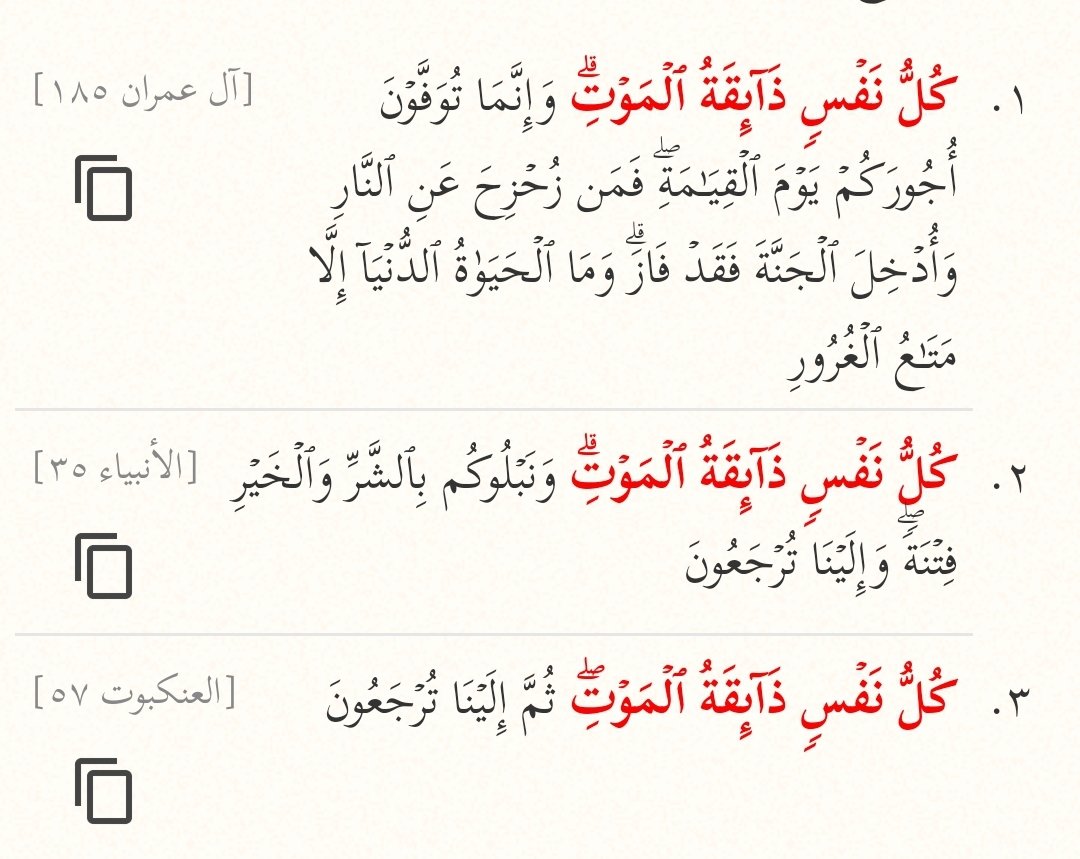 ١. كُلُّ نَفۡسٖ ذَآئِقَةُ ٱلۡمَوۡتِۗ وَإِنَّمَا تُوَفَّوۡنَ [آل عمران ١٨٥]
أُجُورَكُمۡ يَوۡمَ ٱلۡقِيَٰمَةِۖ فَمَن زُحۡزِحَ عَنِ ٱلنَّارِ
وَأُدۡخِلَ ٱلۡجَنَّةَ فَقَدۡ فَازَۗ وَمَا ٱلۡحَيَوٰةُ ٱلدُّنۡيَآ إِلَّا
مَتَٰعُ ٱلۡغُرُورِ
٢. كُلُّ نَفۡسٖ ذَآئِقَةُ ٱلۡمَوۡتِۗ وَنَبۡلُوكُم بِٱلشَّرِّ وَٱلۡخَيۡرِ [الأنبياء ٣٥]
فِتۡنَةٗۖ وَإِلَيۡنَا تُرۡجَعُونَ
٣. كُلُّ نَفۡسٖ ذَآئِقَةُ ٱلۡمَوۡتِۖ ثُمَّ إِلَيۡنَا تُرۡجَعُونَ [العنكبوت ٥٧]